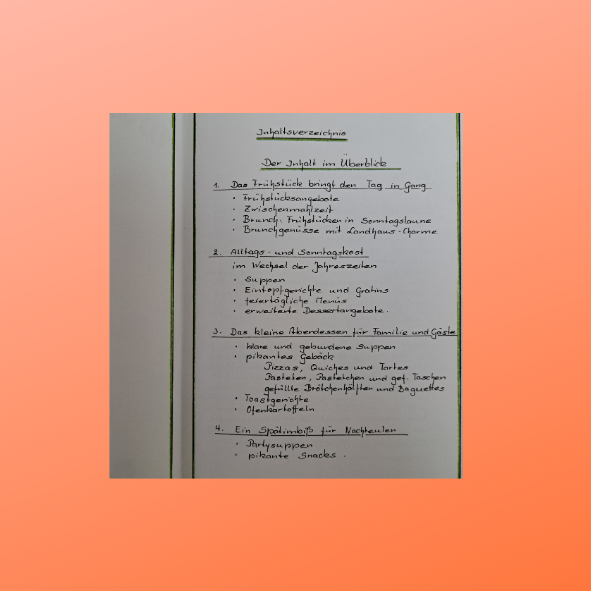 Inhaltsverzeichnis
Der Inhalt im Überblick
1. Das Frühstück bringt den Tag in Gang
• Frühstücksangebote
• Zwischenmahlzeit
• Brunch: Frühstücken in Sonntagslaune
• Brunchgenüsse mit Landhaus-Charme
2. Alltags- und Sonntagskost
im Wechsel der Jahreszeiten
• Suppen
• Eintopfgerichte und Gratins
• feiertägliche Menüs
• erweiterte Dessertangebote.
3. Das kleine Abendessen für Familie und Gäste
• klare und gebundene Suppen
• pikantes Gebäck
Pizzas, Quiches und Tartes
Pasteten, Pastetchen und gef. Taschen
gefüllte Brötchenhälften und Baguettes
• Toastgerichte
• Ofenkartoffeln
4. Ein Spätimbiß für Nachteulen
• Partysuppen
• pikante Snacks.